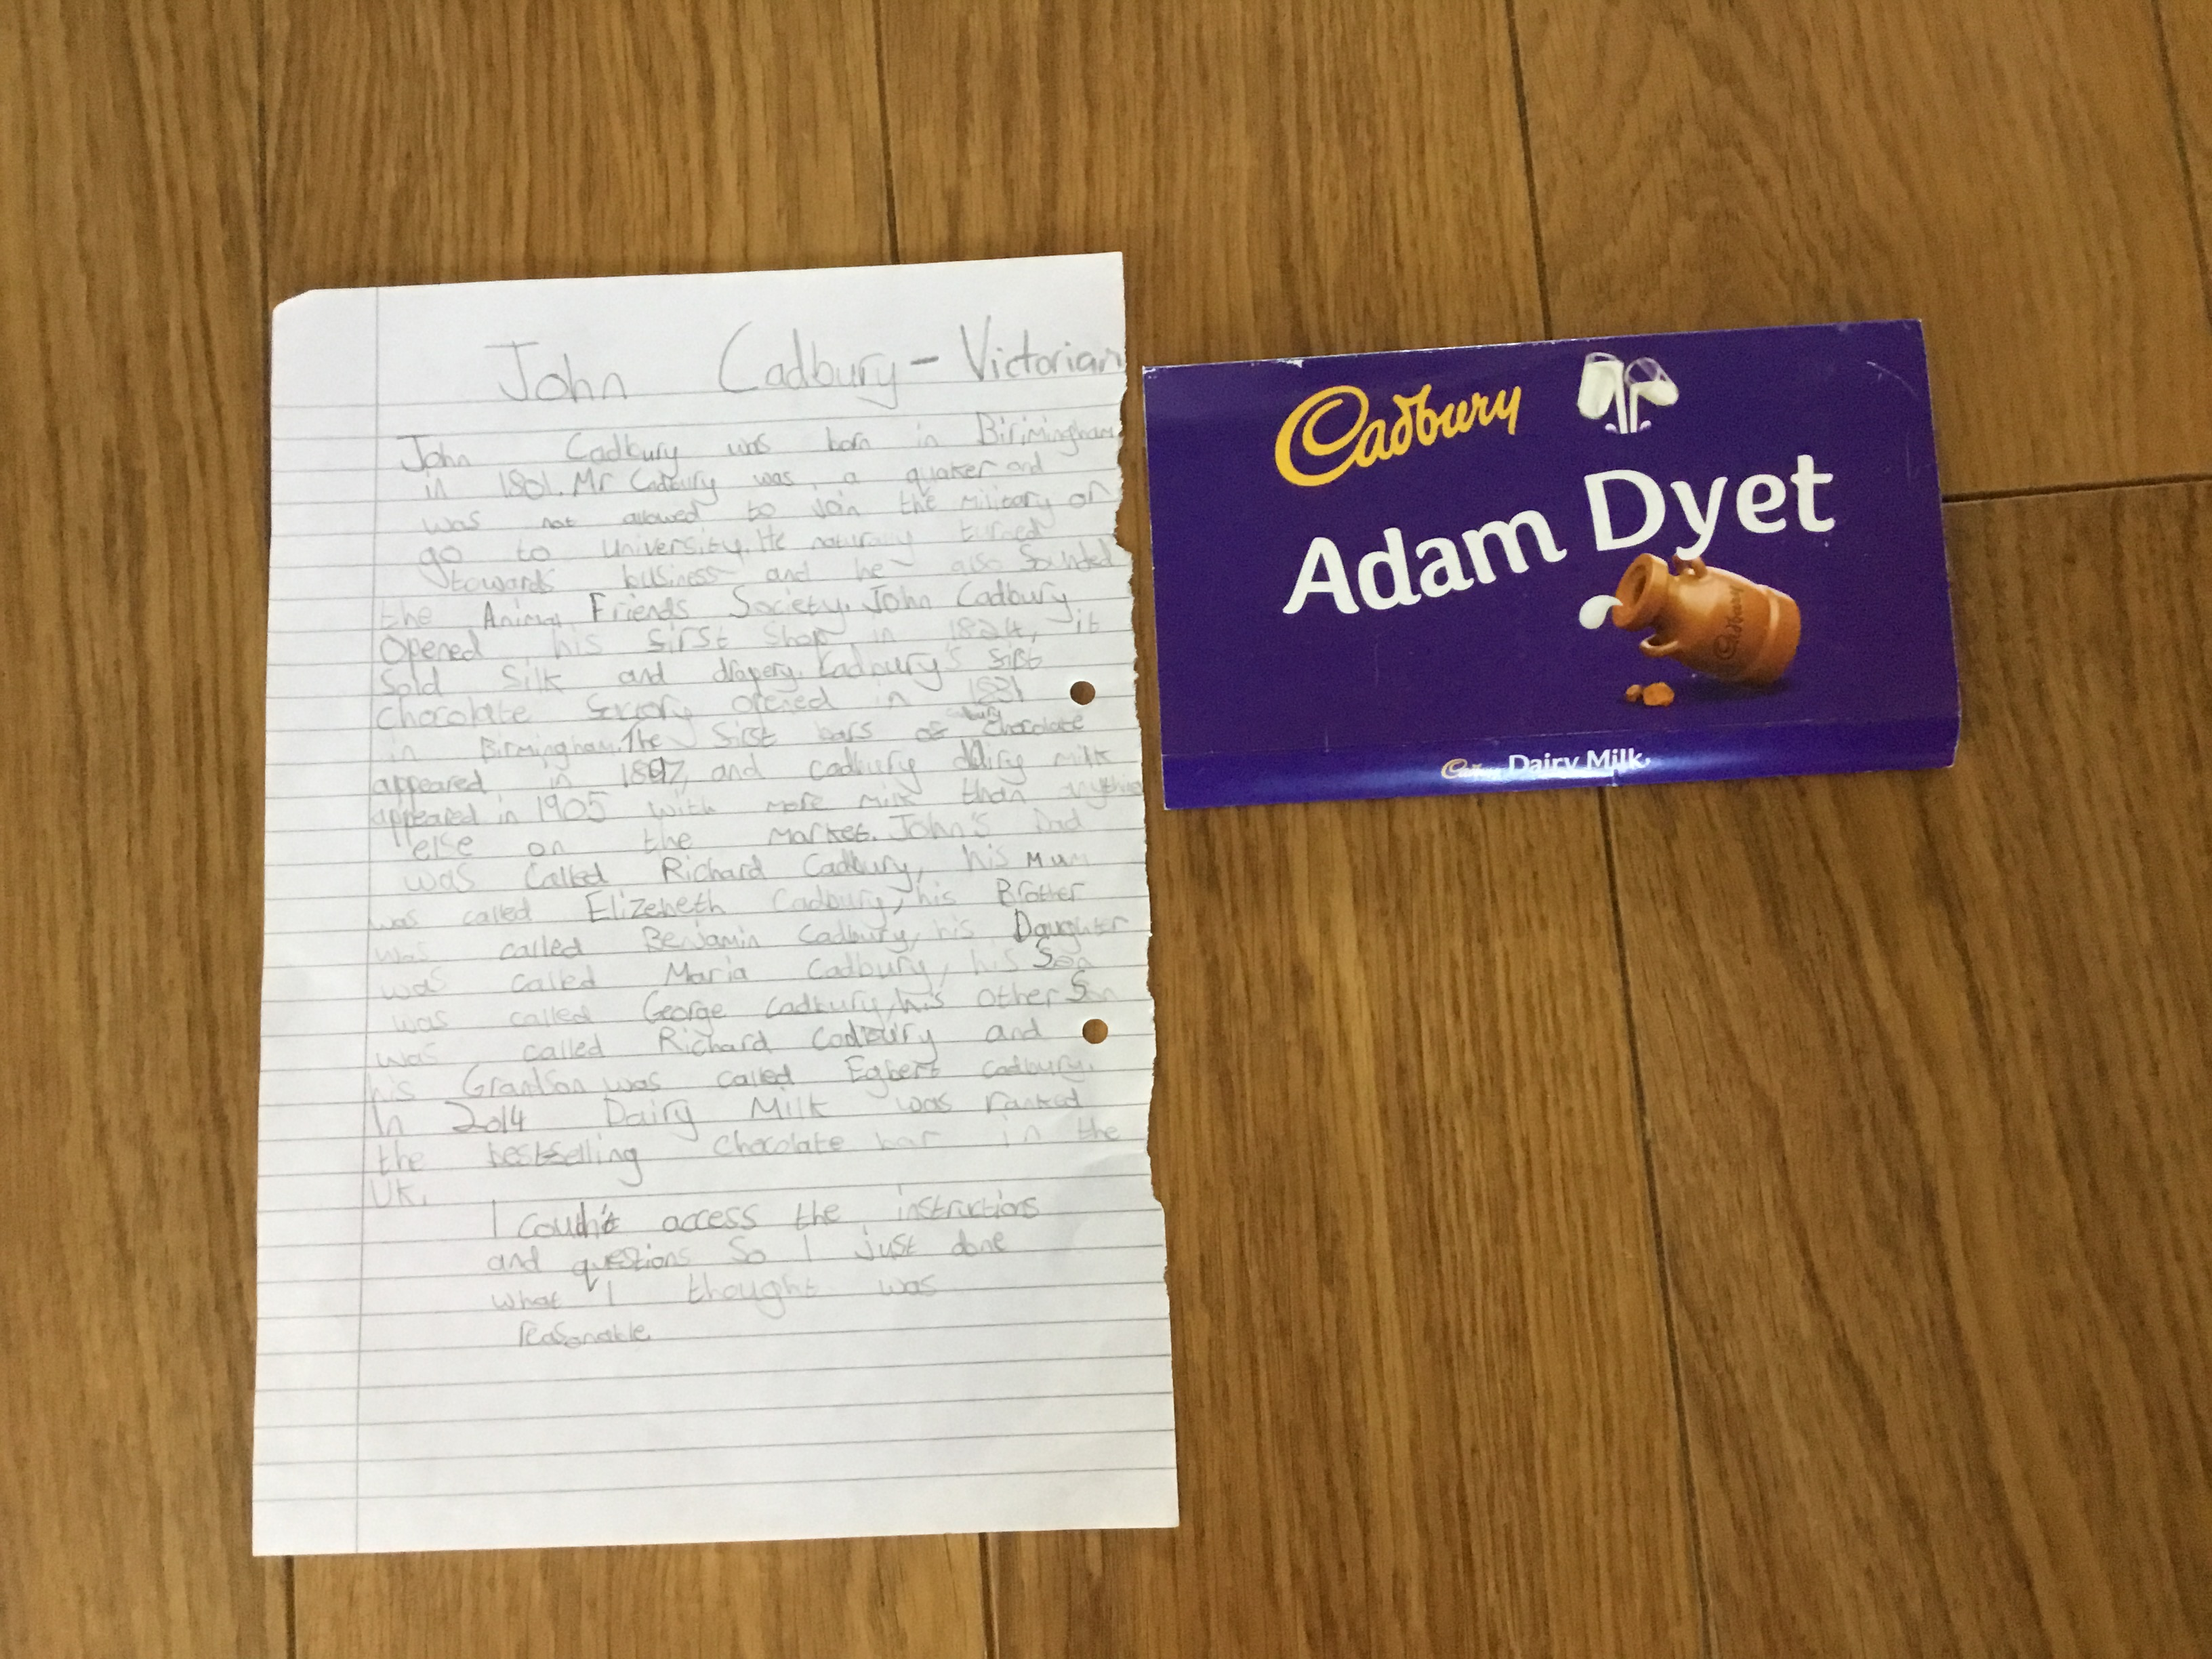 John Cadbury - Victorian
John Cadbury was born in Birimingham
in 1801. Mr Cadbury was a quaker and
was not allowed to join the military or
go to university. He naturaly turned
towards business and he also founded
the Animal Friends Society. John Cadbury
Opened his first shop in 1824, it
sold silk and drapery. Cadbury's first
chocolate factory opened in 1831
in Birmingham. The first bars of Cadbury chocolate
appeared in 1897, and cadbury dairy milk
appeared in 1905 with more milk than anything
else on the market. John's Dad
was called Richard Cadbury, his mum
was called Elizebeth Cadbury, his Brother
was called Benjamin Cadbury, his Daughter
was called Maria Cadbury, his Son
was called George Cadbury, his other Son
was called Richard Cadbury and
his Grandson was called Egbert cadbury.
In 2014 Dairy Milk was ranked
the bestselling chocolate bar in the
UK.
I couldn't access the instructions
and questions so I just done
what I thought was
reasonable
Cadbury
Adam Dyet
Cadbury
Cadbury Dairy Milk